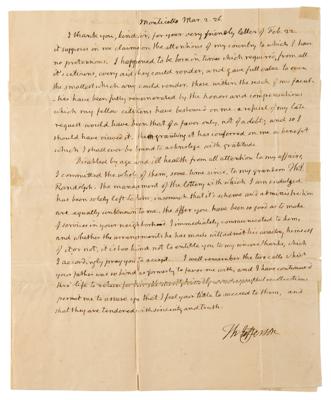 Monticello Mar. 2. 26.
I thank you, kind sir, for your very friendly letter of Feb. 22
it supposes on me claims on the attentions of my country to which I have
no pretensions. I happened to be born in times which required, from all
it's citizens, every aid they could render, and gave full value to even
the smallest which any could render. those within the reach of my facul-
-ties have been fully remunerated by the honors and compensations
which my fellow citizens have bestowed on me. a refusal of my late
request would have been that of a favor only, not of a debt; and so I
should have viewed it. the granting it has conferred on me a benefit
which I shall ever be bound to acknolege with gratitude.
Disabled by age and ill health from all attention to my affairs,
I committed the whole of them, some time since, to my grandson Th: J.
Randolph. The management of the lottery with which I am indulged
has been solely left to him, insomuch that it's scheme and administration
are equally unknown to me. the offer you have been so good as to make
of services in your neighborhood I immediately communicated to him,
and whether the arrangements he has made will admit his availing himself
of it, or not, it is too kind not to entitle you to my sincere thanks, which
I accordingly pray you to accept. I well remember the two calls which
your father was so kind as formerly to favor me with, and I have continued
thro' life to for him and respectful recollections
permit me to assure you that I feel your title to succeed to them, and
that they are tendered with sincerity and truth.
Th: Jefferson